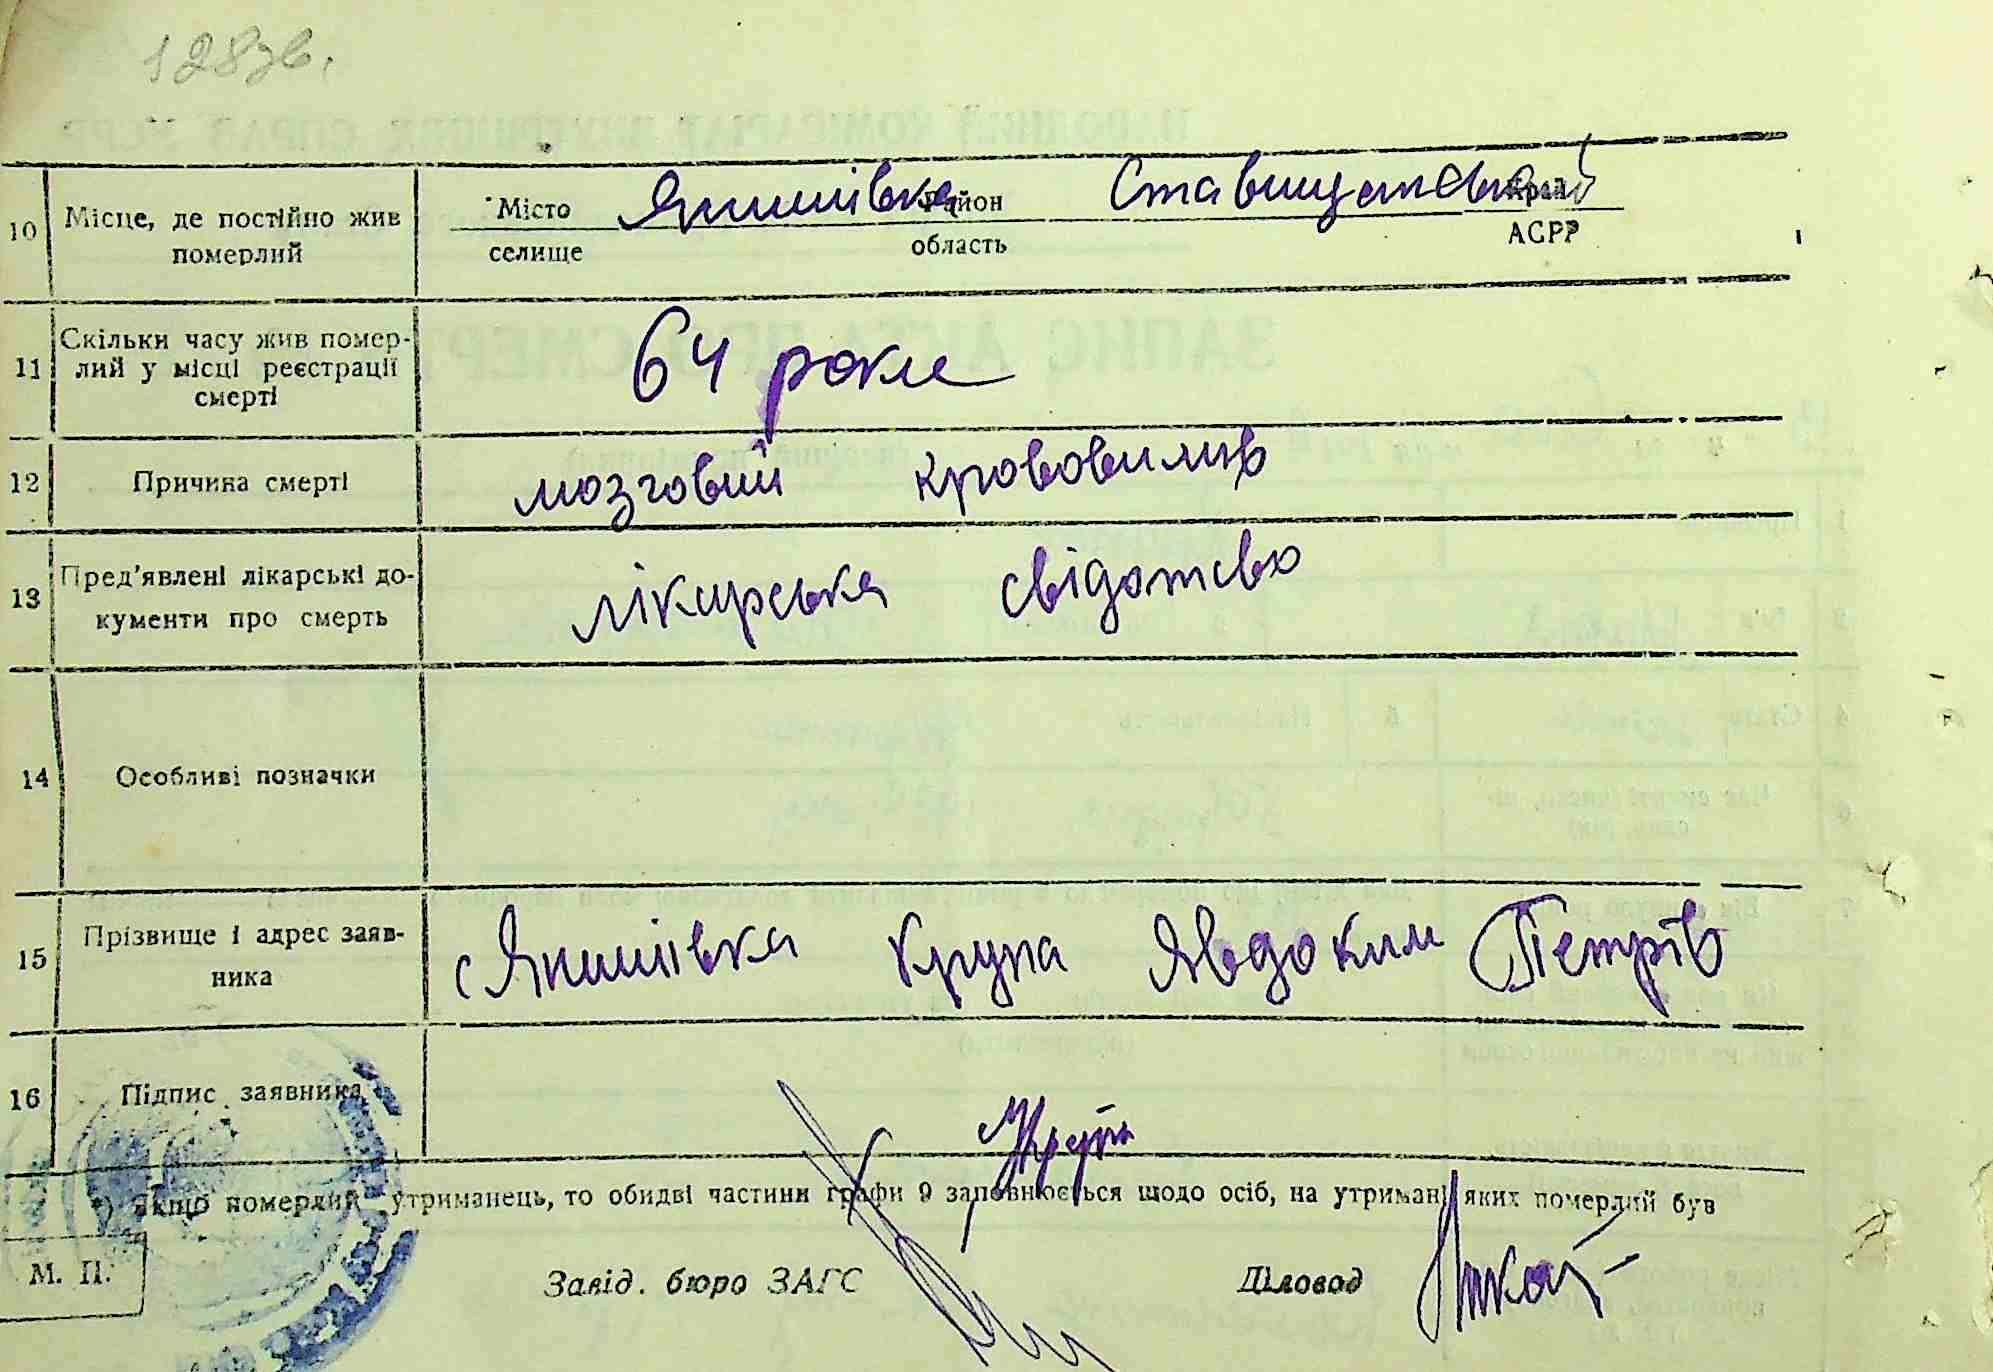 128зв.
10 Місце, де постійно жив померлий Місто селище Янишівка Район область Ставищанський Край АСРР
11 Скільки часу жив померлий у місці реєстрації смерті 64 роки
12 Причина смерті мозговий крововилив
13 Пред'явлені лікарські документи про смерть лікарська свідотсво
14 Особливі позначки
15 Прізвище і адрес заявника с Янишівка Крупа Явдоким Петрів
16 Підпис заявника Крупа
*) Якщо померлий утриманець, то обидві частини графи 9 заповнюється щодо осіб, на утримані яких померлий був
М. П. Завід. бюро ЗАГС Діловод